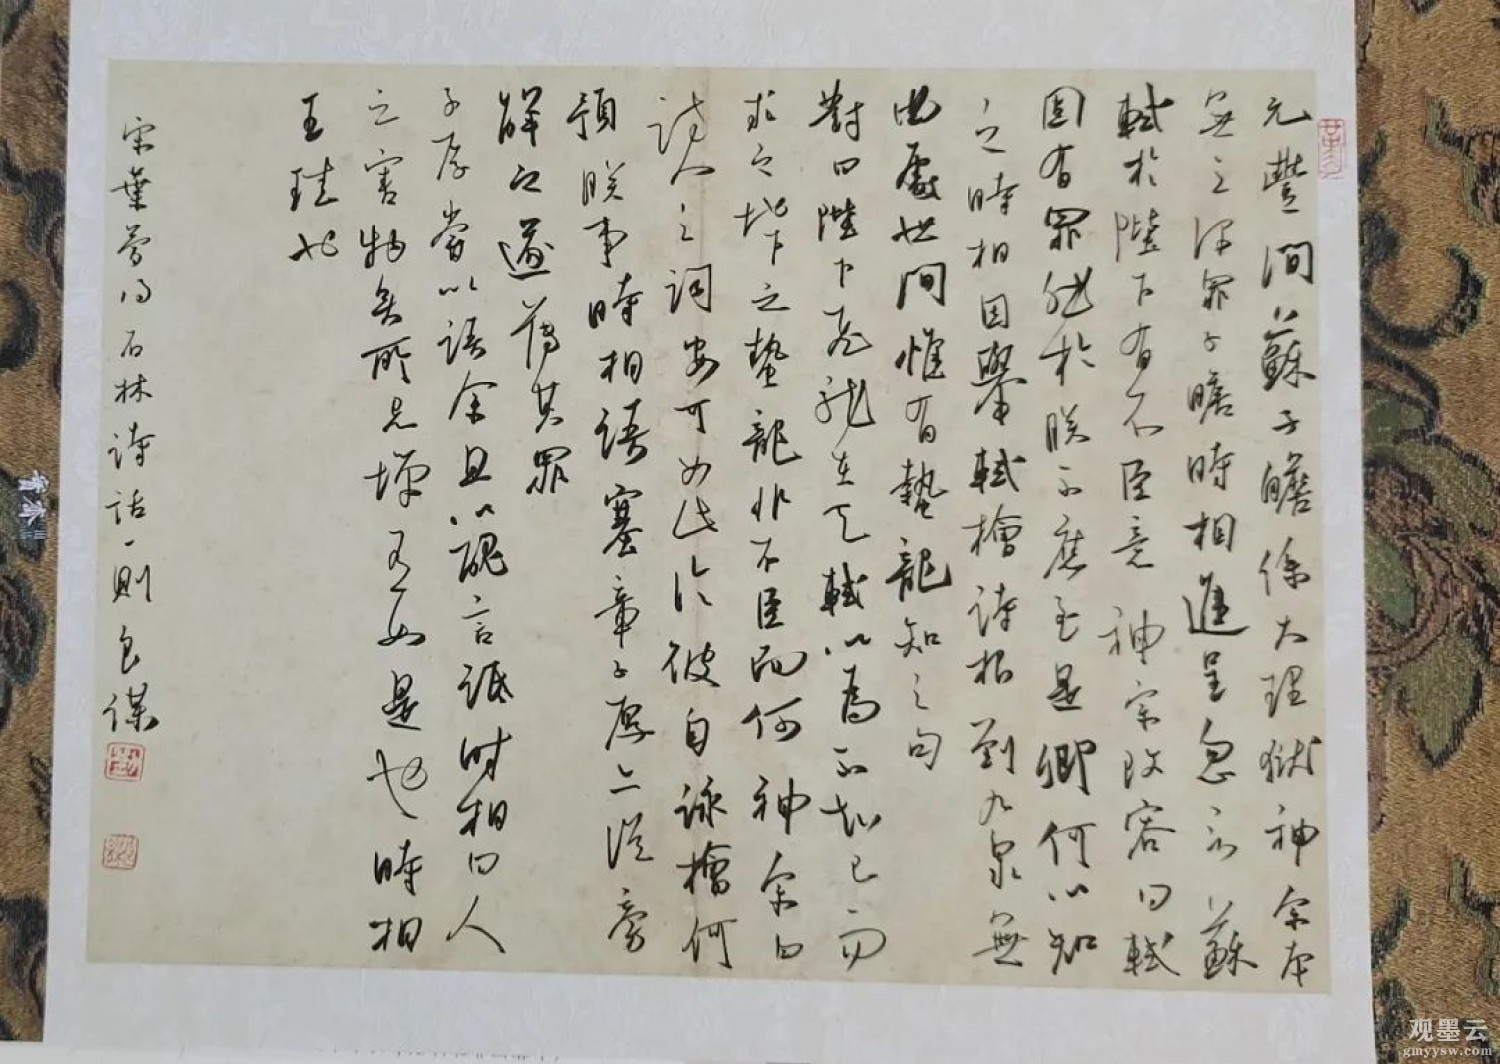 元豐間蘇子瞻係大理獄神宗本
無意深罪子瞻時相進呈忽言蘇
軾於陛下有不臣意神宗改容曰軾
固有罪然於朕不應至是卿何以知
之時相因舉軾檜詩根到九泉無
曲處世間惟有蟄龍知之句
對曰陛下飛龍在天軾以為不知己而
求之地下之蟄龍非不臣而何神宗曰
詩人之詞安可如此論彼自詠檜何
預朕事時相語塞章子厚亦從旁
解之遂薄其罪
子厚嘗以語余且以醜言詆時相曰人
之害物無所忌憚有如是也時相
王珪也
宋葉夢得石林詩話一則良謀
觀墨云
gmyysw.com